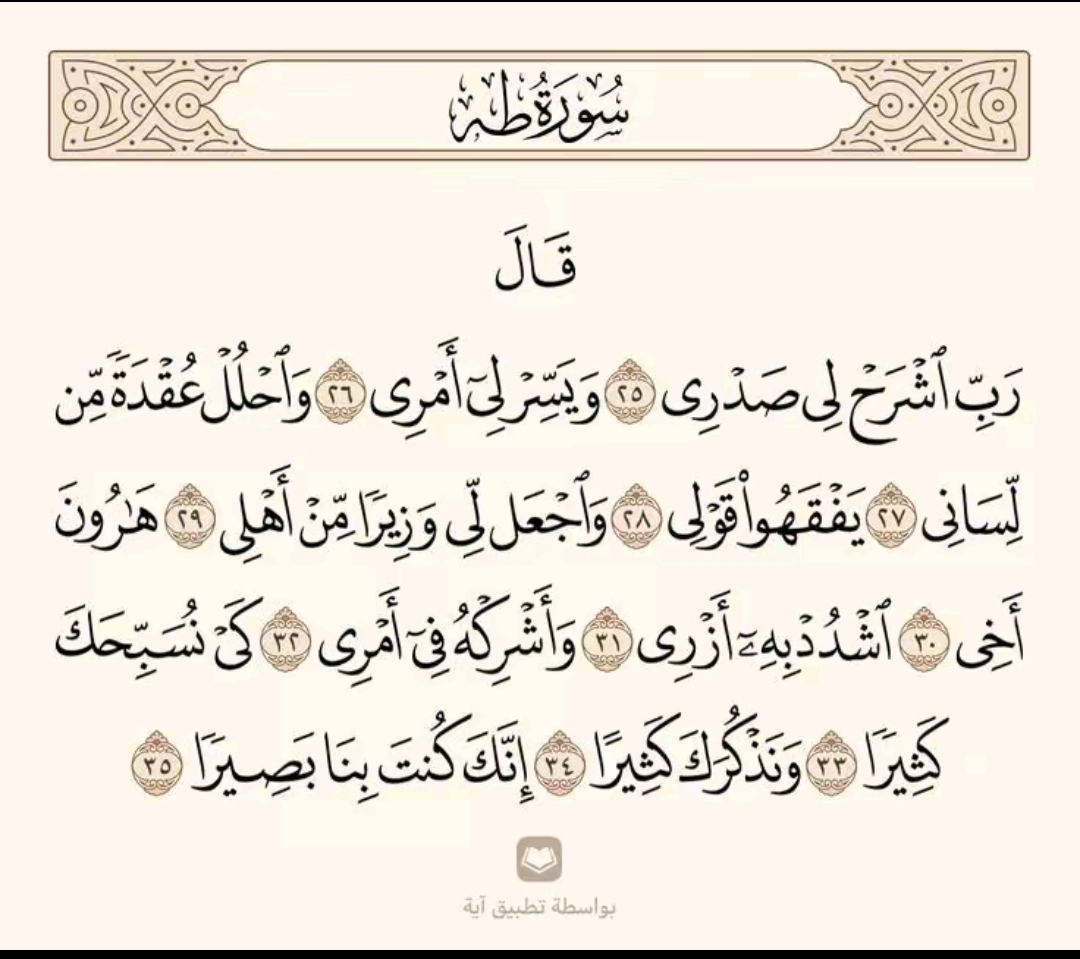 سُورَةُ طه
قَالَ
رَبِّ ٱشْرَحْ لِى صَدْرِى ٢٥ وَيَسِّرْ لِىٓ أَمْرِى ٢٦ وَٱحْلُلْ عُقْدَةً مِّن
لِّسَانِى ٢٧ يَفْقَهُوا۟ قَوْلِى ٢٨ وَٱجْعَل لِّى وَزِيرًا مِّنْ أَهْلِى ٢٩ هَٰرُونَ
أَخِى ٣٠ ٱشْدُدْ بِهِۦٓ أَزْرِى ٣١ وَأَشْرِكْهُ فِىٓ أَمْرِى ٣٢ كَىْ نُسَبِّحَكَ
كَثِيرًا ٣٣ وَنَذْكُرَكَ كَثِيرًا ٣٤ إِنَّكَ كُنتَ بِنَا بَصِيرًا ٣٥
بواسطة تطبيق آية